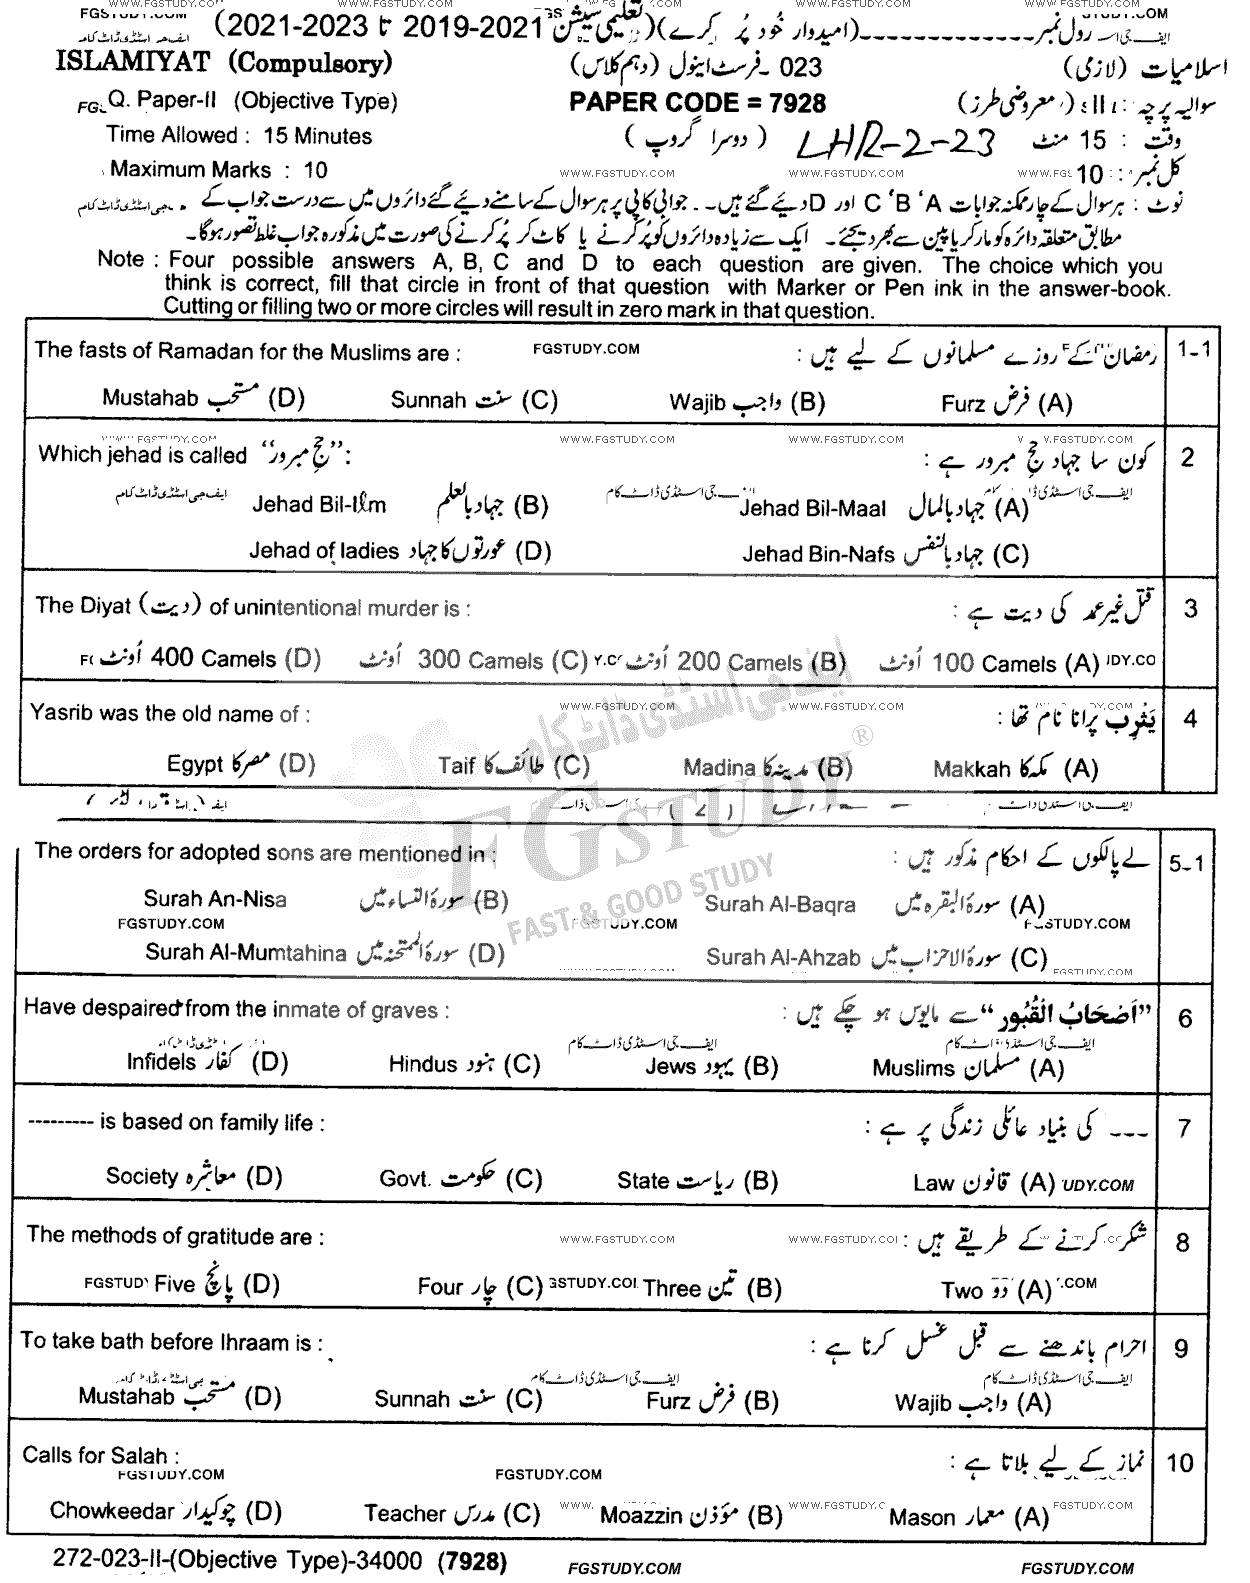 رول نمبر ---------------(امیدوار خود پُر کرے)(تعلیمی سیشن 2021-2019 تا 2023-2021)
اسلامیات (لازمی) 023 - فرسٹ اینول (دہم کلاس) ISLAMIYAT (Compulsory)
سوالیہ پرچہ : II (معروضی طرز) PAPER CODE = 7928 Q. Paper-II (Objective Type)
وقت : 15 منٹ LHR-2-23 (دوسرا گروپ) Time Allowed : 15 Minutes
کل نمبر : 10 WWW.FGSTUDY.COM Maximum Marks : 10
نوٹ : ہر سوال کے چار ممکنہ جوابات A ' B ' C اور D دیئے گئے ہیں۔ جوابی کاپی پر ہر سوال کے سامنے دیئے گئے دائروں میں سے درست جواب کے
مطابق متعلقہ دائرہ کو مارکر یا پین سے بھر دیجئے۔ ایک سے زیادہ دائروں کو پُر کرنے یا کاٹ کر پُر کرنے کی صورت میں مذکورہ جواب غلط تصور ہوگا۔
Note : Four possible answers A, B, C and D to each question are given. The choice which you
think is correct, fill that circle in front of that question with Marker or Pen ink in the answer-book.
Cutting or filling two or more circles will result in zero mark in that question.
1-1 رمضان کے روزے مسلمانوں کے لیے ہیں : FGSTUDY.COM The fasts of Ramadan for the Muslims are :
(A) فرض Furz (B) واجب Wajib (C) سنت Sunnah (D) مستحب Mustahab
WWW.FGSTUDY.COM WWW.FGSTUDY.COM
2 کون سا جہاد حجِ مبرور ہے : Which jehad is called "حجِ مبرور":
(A) جہاد بالمال Jehad Bil-Maal (B) جہاد بالعلم Jehad Bil-Ilm
(C) جہاد بالنفس Jehad Bin-Nafs (D) عورتوں کا جہاد Jehad of ladies
3 قتل غیر عمد کی دیت ہے : The Diyat (دیت) of unintentional murder is :
(A) 100 Camels اُونٹ (B) 200 Camels اُونٹ (C) 300 Camels اُونٹ (D) 400 Camels اُونٹ
4 یَثْرِب پرانا نام تھا : WWW.FGSTUDY.COM Yasrib was the old name of :
(A) مکہ کا Makkah (B) مدینہ کا Madina (C) طائف کا Taif (D) مصر کا Egypt
ایف جی اسٹڈی ڈاٹ کام
FGSTUDY®
FAST & GOOD STUDY
5-1 لے پالکوں کے احکام مذکور ہیں : The orders for adopted sons are mentioned in :
(A) سورۃ البقرہ میں Surah Al-Baqra (B) سورۃ النساء میں Surah An-Nisa
FGSTUDY.COM FGSTUDY.COM FGSTUDY.COM
(C) سورۃ الاحزاب میں Surah Al-Ahzab (D) سورۃ الممتحنہ میں Surah Al-Mumtahina
6 "اَصْحَابُ الْقُبُور" سے مایوس ہو چکے ہیں : Have despaired from the inmate of graves :
(A) مسلمان Muslims (B) یہود Jews (C) ہنود Hindus (D) کفار Infidels
7 --- کی بنیاد عائلی زندگی پر ہے : --------- is based on family life :
(A) قانون Law (B) ریاست State (C) حکومت Govt. (D) معاشرہ Society
8 شکر کرنے کے طریقے ہیں : WWW.FGSTUDY.COM The methods of gratitude are :
(A) دو Two (B) تین Three (C) چار Four (D) پانچ Five
9 احرام باندھنے سے قبل غسل کرنا ہے : To take bath before Ihraam is :
(A) واجب Wajib (B) فرض Furz (C) سنت Sunnah (D) مستحب Mustahab
10 نماز کے لیے بلاتا ہے : Calls for Salah :
FGSTUDY.COM FGSTUDY.COM
(A) معمار Mason (B) مؤذن Moazzin (C) مدرس Teacher (D) چوکیدار Chowkeedar
272-023-II-(Objective Type)-34000 (7928) FGSTUDY.COM FGSTUDY.COM